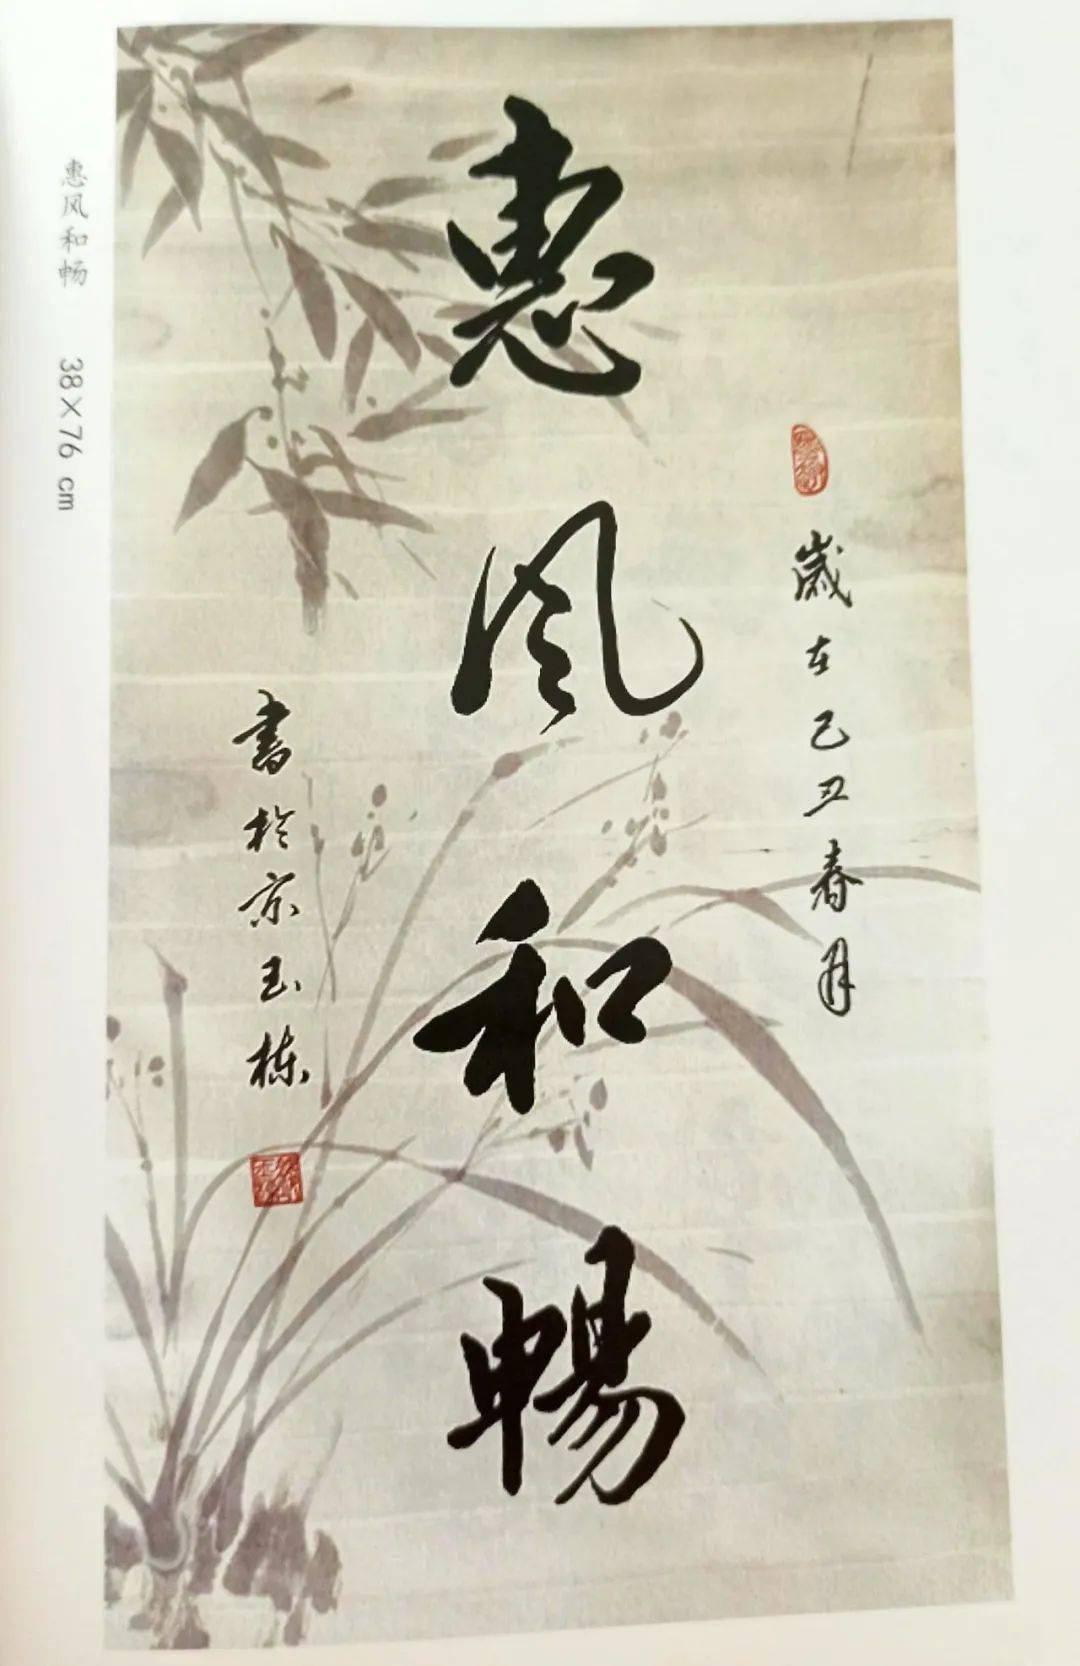 惠风和畅 38×76 cm
歲在己丑春月
惠风和暢
書於京玉栋